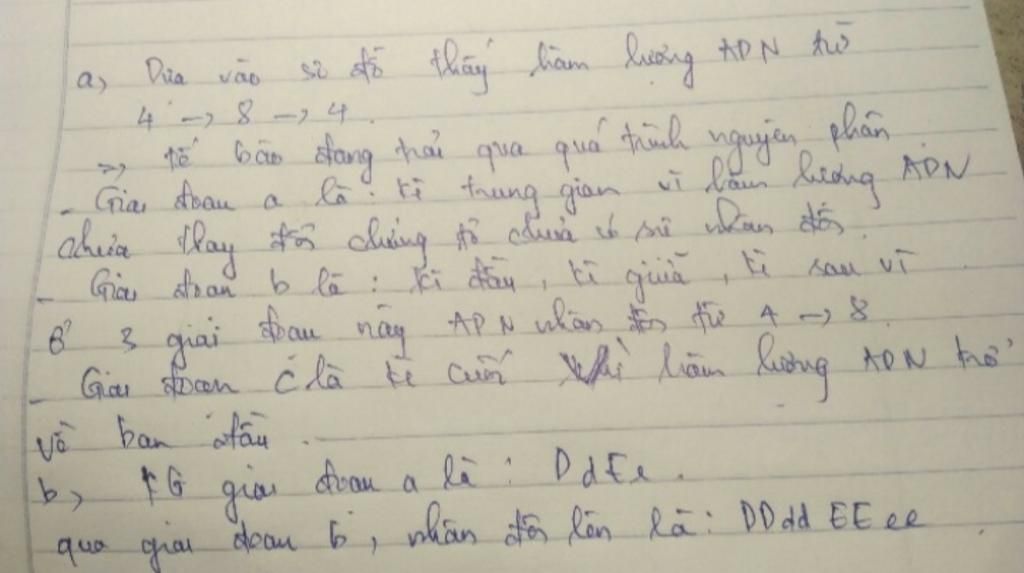 a, Dựa vào sơ đồ thấy hàm lượng ADN từ
4 -> 8 -> 4.
=> tế bào đang trải qua quá trình nguyên phân
- Giai đoạn a là: kì trung gian vì hàm lượng ADN
chưa thay đổi chứng tỏ chưa có sự nhân đôi.
- Giai đoạn b là: kì đầu, kì giữa, kì sau vì
ở 3 giai đoạn này ADN nhân đôi từ 4 -> 8.
- Giai đoạn c là kì cuối vì hàm lượng ADN trở
về ban đầu.
b, KG giai đoạn a là: DdEe.
qua giai đoạn b, nhân đôi lên là: DDddEEee.